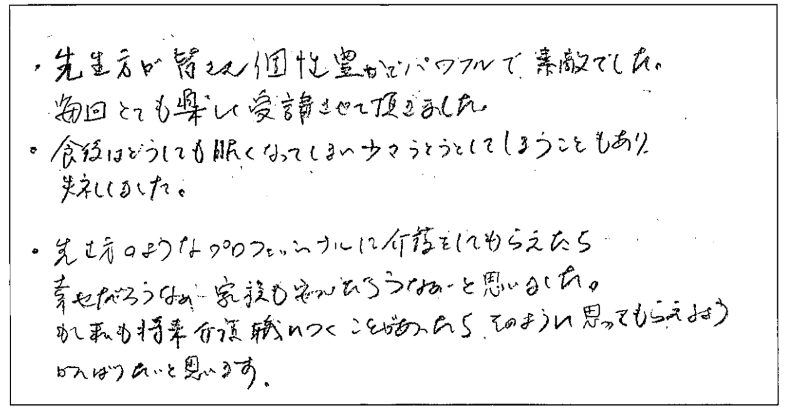 ・先生方が皆さん個性豊かでパワフルで素敵でした。
毎回とても楽しく受講させて頂きました。
・食後はどうしても眠くなってしまい少々うとうとしてしまうこともあり
失礼しました。
・先生方のようなプロフェッショナルに介護をしてもらえたら
幸せだろうなぁ…家族も安心だろうなぁーと思いました。
もし私も将来介護職につくことがあったら、そのように思ってもらえるよう
がんばりたいと思います。